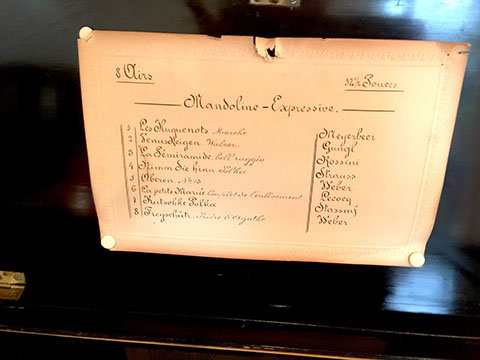 8 Airs
Mandoline - Expressive.
1 Les Huguenots Marche. Meyerbeer
2 Venus Reigen Walzer. Gungl
3 La Sémiramide bell' raggio Rossini
4 Nimm Sie hin Polka Strauss
5 Oberon No 10 Weber
6 La petite Mariée Couplet de l'enlèvement Lecocq
7 Kutschke Polka Stassny
8 Freyschutz, Prière d'Agathe Weber